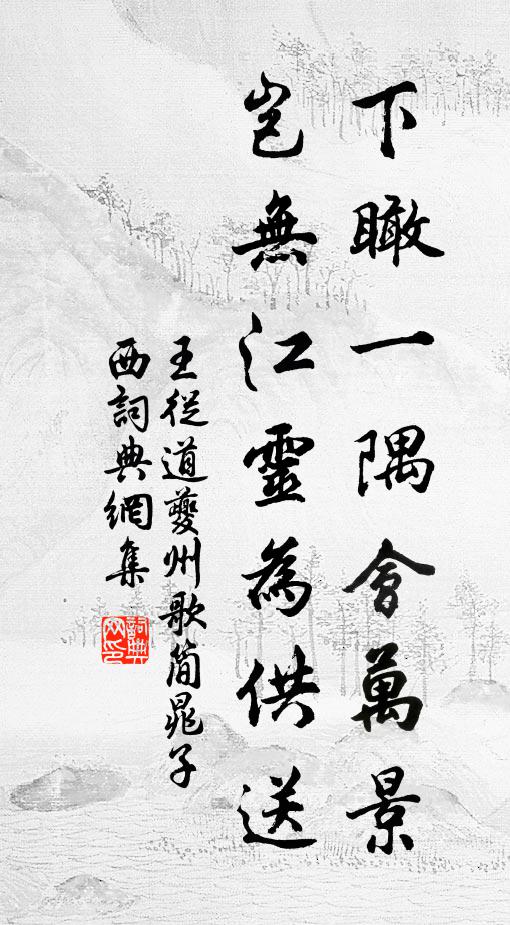 下瞰一隅會萬景
豈無江靈為供送
王從道夔州歌簡晁子
西詞典網集
詞典